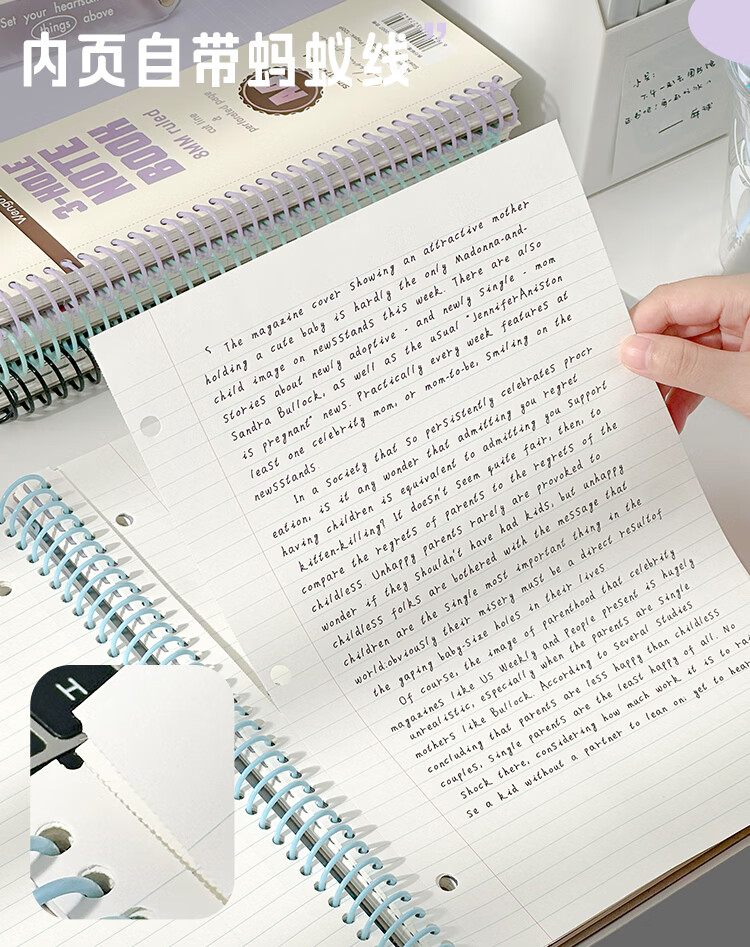 Set your hearts
things above
内页自带蚂蚁线
3-HOLE
NOTE
BOOK
8MM ruled
perforated page
&
cut line
A
H
The magazine cover showing an attractive mother
holding a cute baby is hardly the only Madonna-and-
child image on newsstands this week. There are also
stories about newly adoptive - and newly single - mom
Sandra Bullock, as well as the usual "JenniferAniston
is pregnant" news. Practically every week features at
least one celebrity mom, or mom-to-be, smiling on the
newsstands.
In a society that so persistently celebrates procr
eation, is it any wonder that admitting you regret
having children is equivalent to admitting you support
kitten-killing? It doesn't seem quite fair, then, to
compare the regrets of parents to the regrets of the
childless. Unhappy parents rarely are provoked to
wonder if they shouldn't have had kids, but unhappy
childless folks are bothered with the message that
children are the single most important thing in the
world.obviously their misery must be a direct resultof
the gaping baby-size holes in their lives
Of course, the image of parenthood that celebrity
magazines like Us Weekly and People present is hugely
unrealistic, especially when the parents are single
mothers like Bullock. According to several studies
concluding that parents are less happy than childless
couples, single parents are the least happy of all. No
shock there, considering how much work it is to rai
se a kid without a partner to lean on; yet to hear